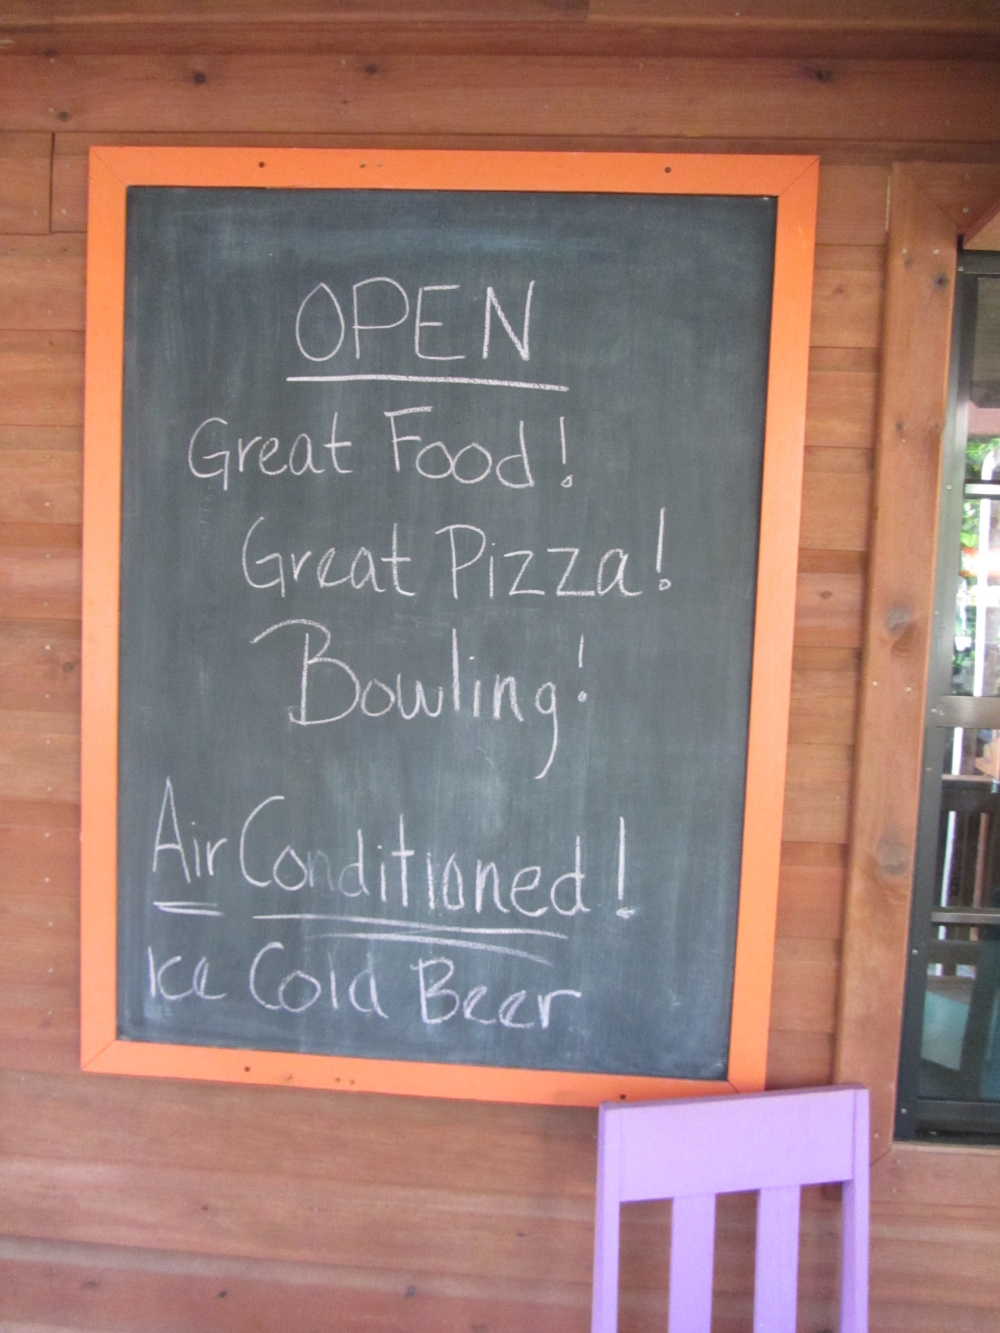 OPEN
Great Food!
Great Pizza!
Bowling!
Air Conditioned!
Ice Cold Beer